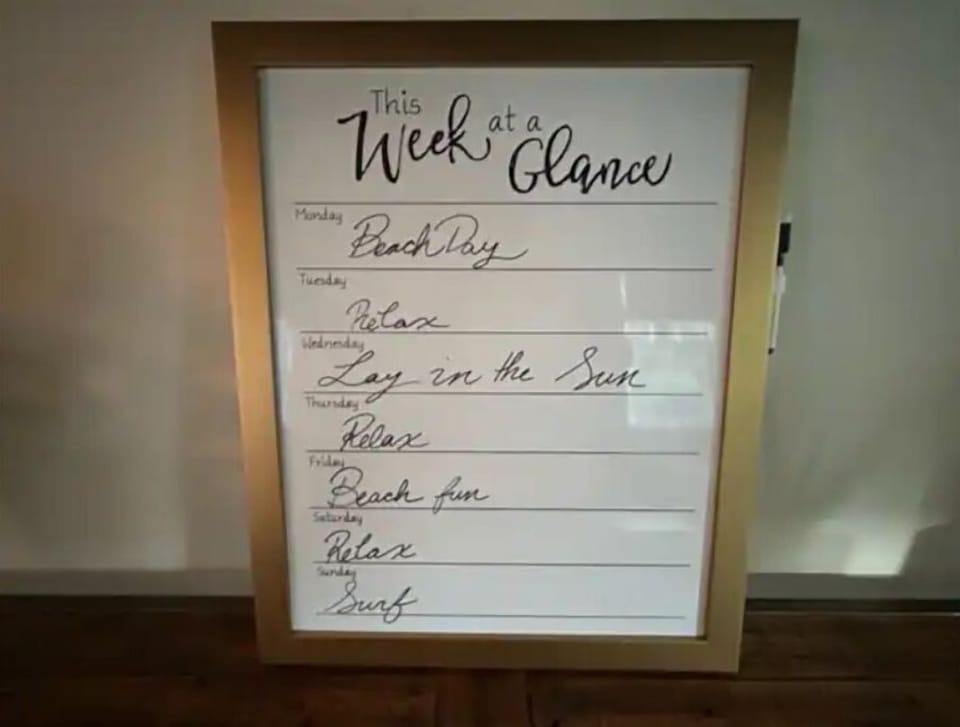 This
Week at a
Glance
Monday
Beach Day
Tuesday
Relax
Wednesday
Lay in the Sun
Thursday
Relax
Friday
Beach fun
Saturday
Relax
Sunday
Surf